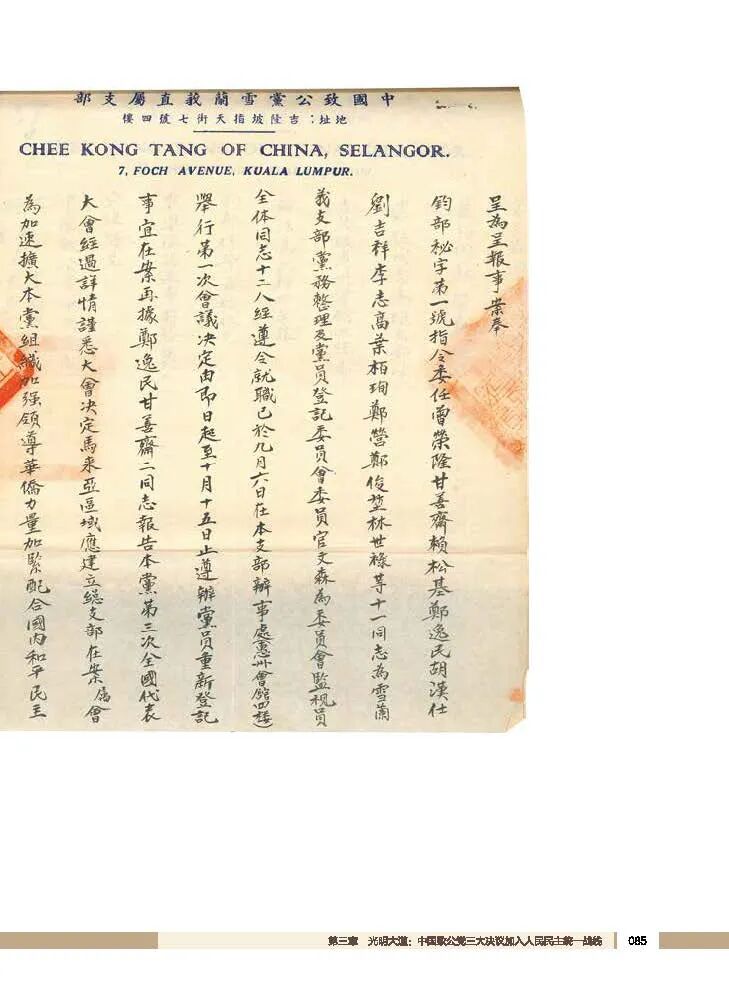 中國致公黨雪蘭莪直屬支部
地址：吉隆坡指天街七號四樓
CHEE KONG TANG OF CHINA, SELANGOR.
7, FOCH AVENUE, KUALA LUMPUR.
呈為呈報事案奉
鈞部秘字第一號指令委任曾榮隆甘善齋賴松基鄭逸民胡漢仕
劉吉祥李志高葉栢珣鄭營鄭俊莖林世祿等十一同志為雪蘭
莪支部黨務整理及黨員登記委員會委員官文森為委員會監視員
全体同志十二人經遵令就職已於九月六日在本支部辦事處(惠州會館四樓)
舉行第一次會議决定由即日起至十月十五日止遵辦黨員重新登記
事宜在案再據鄭逸民甘善齋二同志報告本黨第三次全國代表
大會經過詳情謹悉大會决定馬來亞區域應建立總支部在案屬會
為加速擴大本黨組織加强領導華僑力量加緊配合國内和平民主
第三章 光明大道：中国致公党三大决议加入人民民主统一战线
085